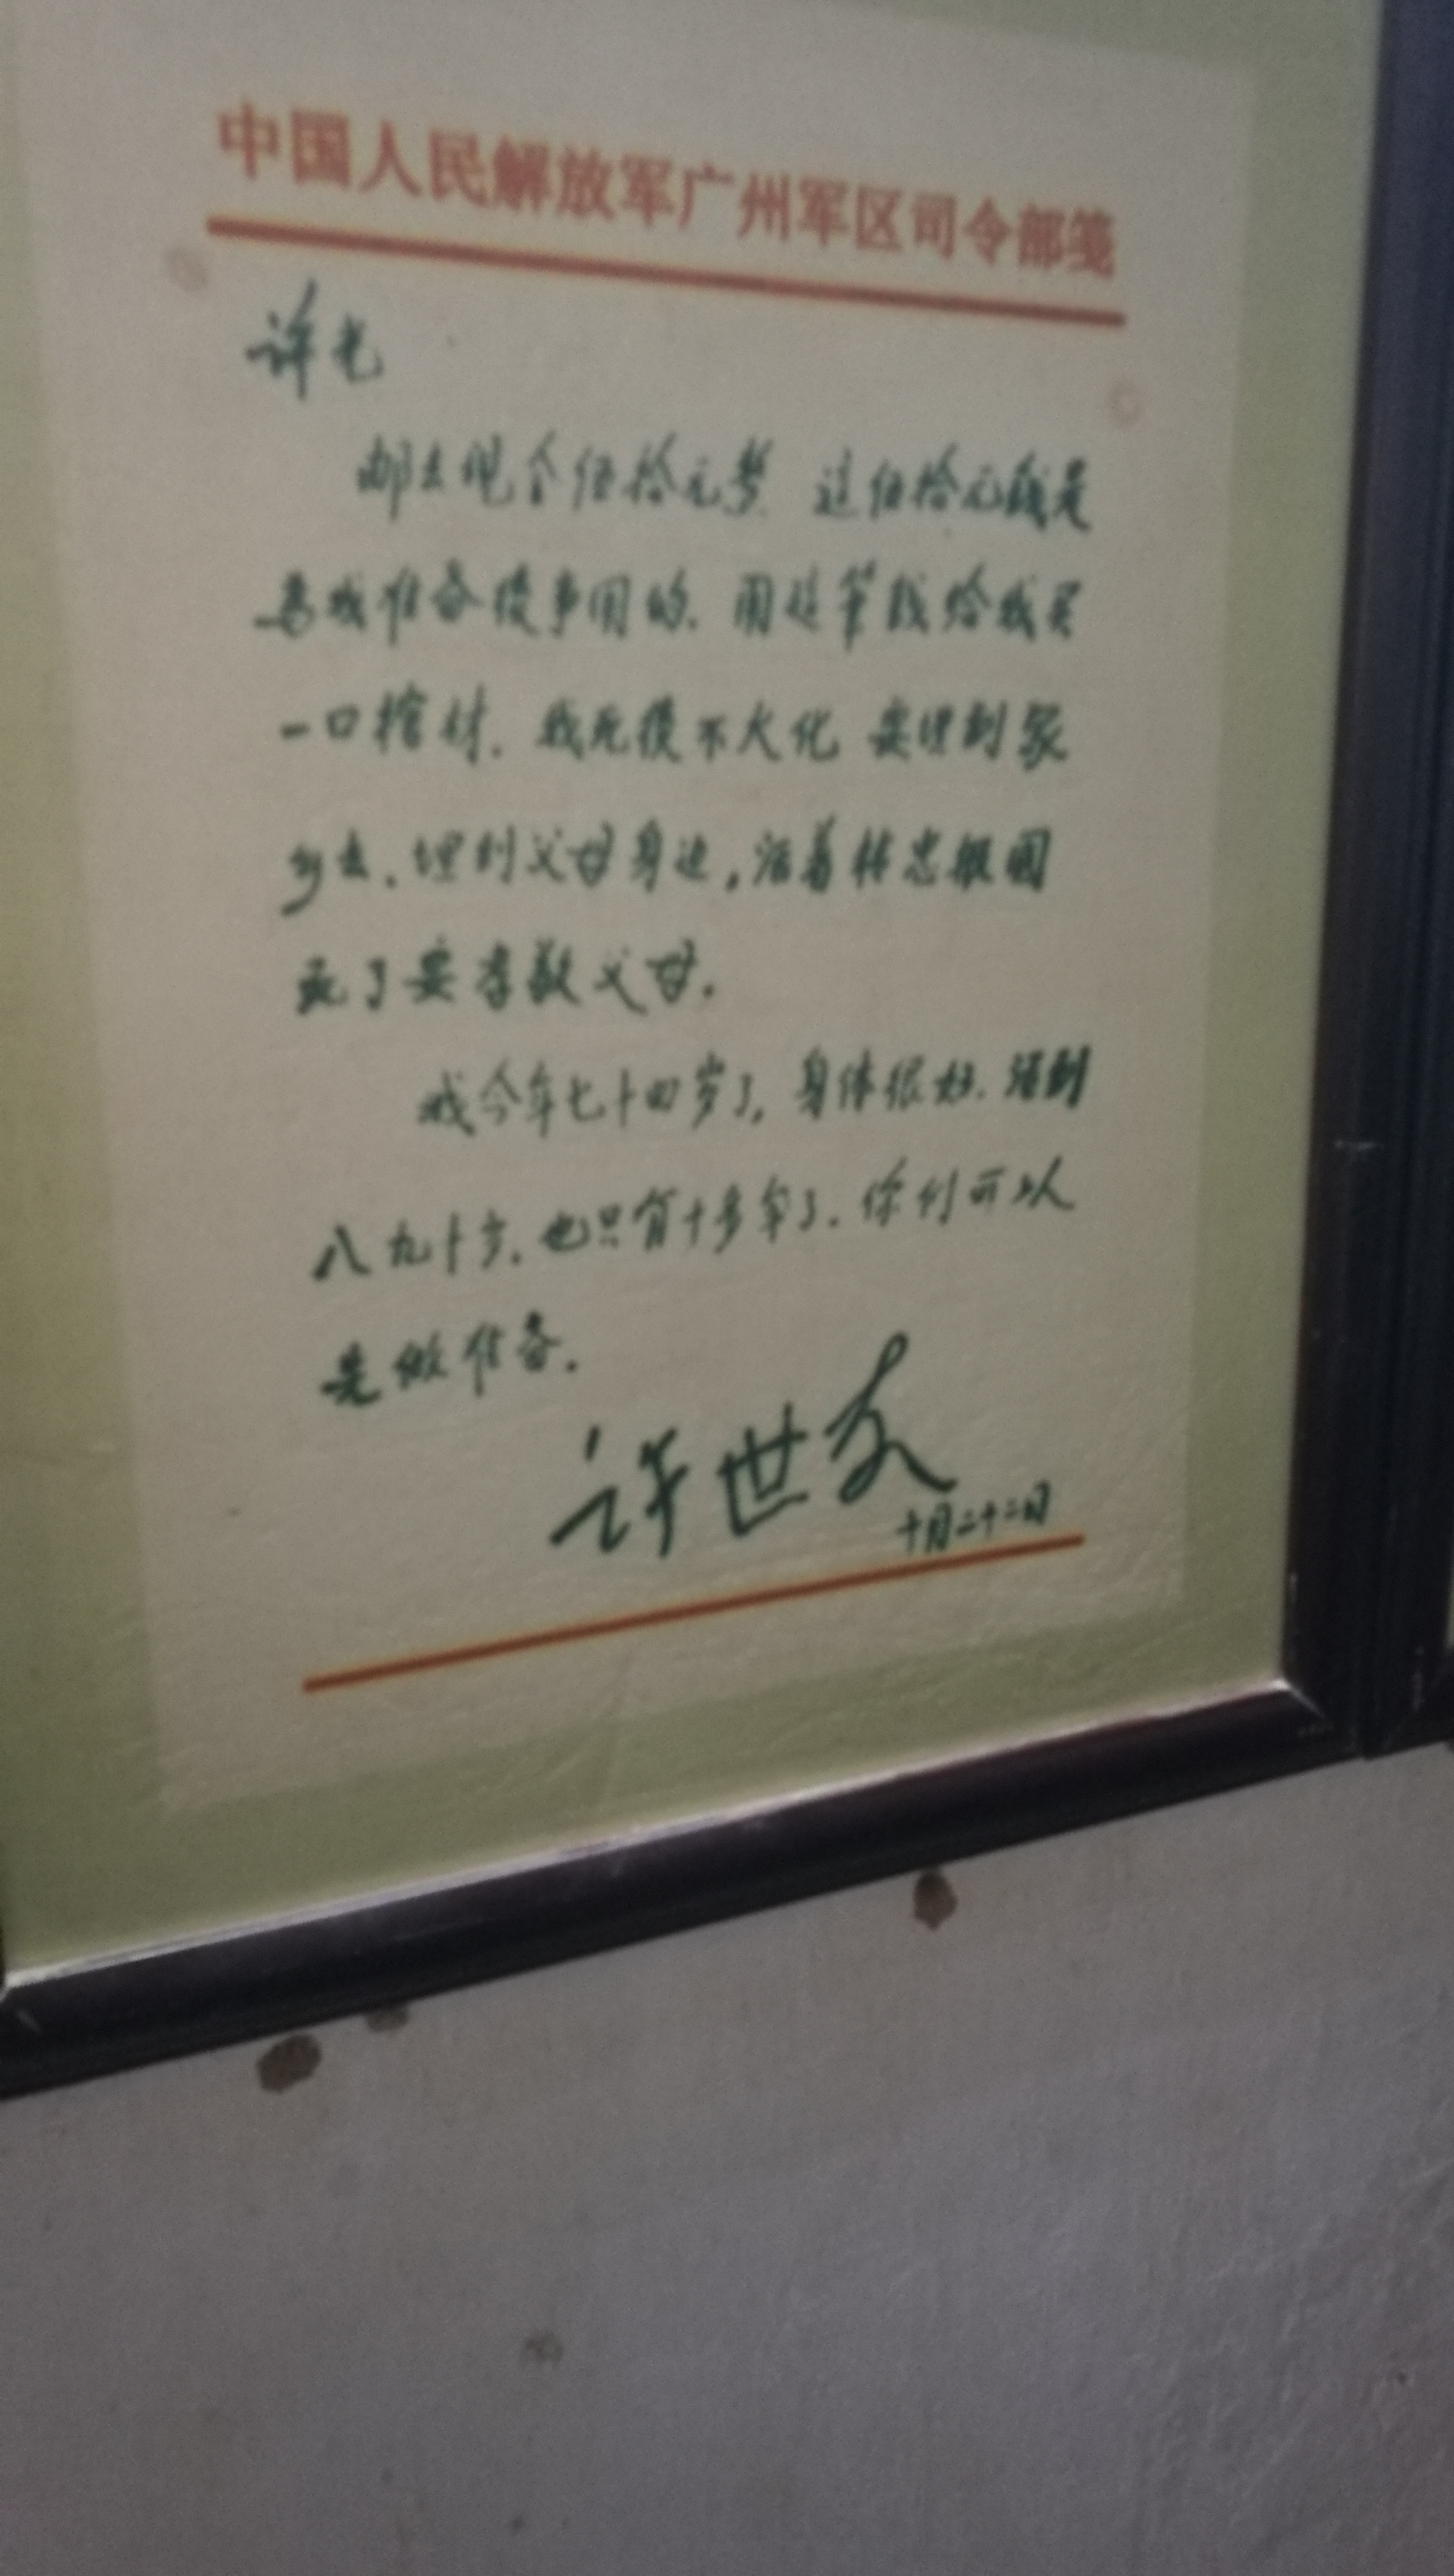 中国人民解放军广州军区司令部笺
许光
邮去现金伍拾元整 这伍拾元钱是
为我准备后事用的. 用这笔钱给我买
一口棺材. 我死後不火化 要埋到家
乡去. 埋到父母身边, 活着林忠报国
死了要孝敬父母.
我今年七十四岁了, 身体很好. 活到
八九十岁. 也只有十多年了. 你们可以
先做准备.
许世友
十月二十二日